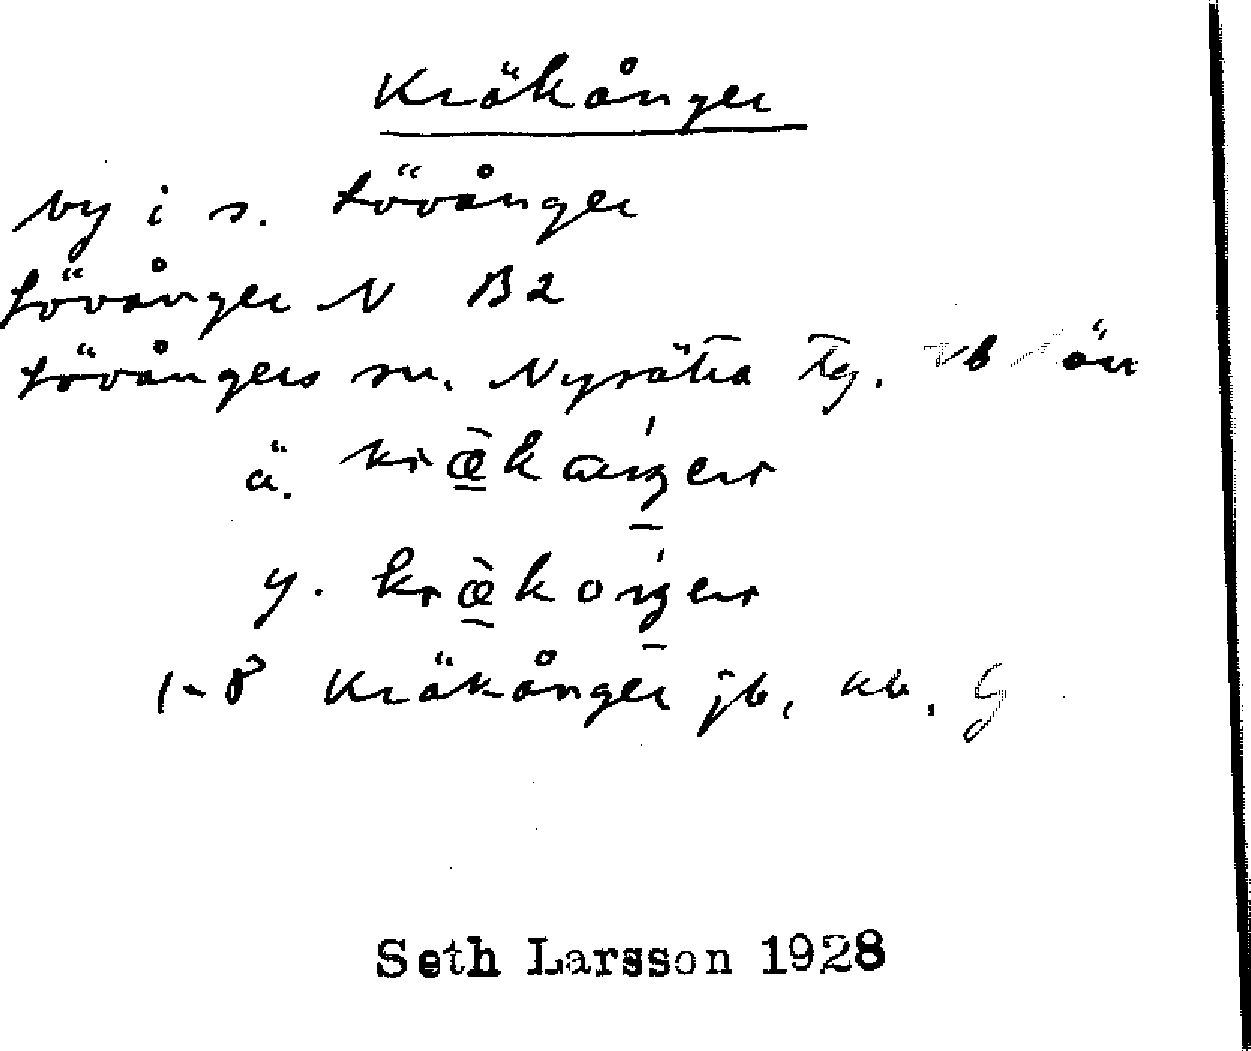 Kräkånger
by i s. Lövånger
Lövånger N B2
Lövångers sn. Nysätra Tg. Vb län
ä.
y.
1-8 Kräkånger jb, kb, G
Seth Larsson 1928